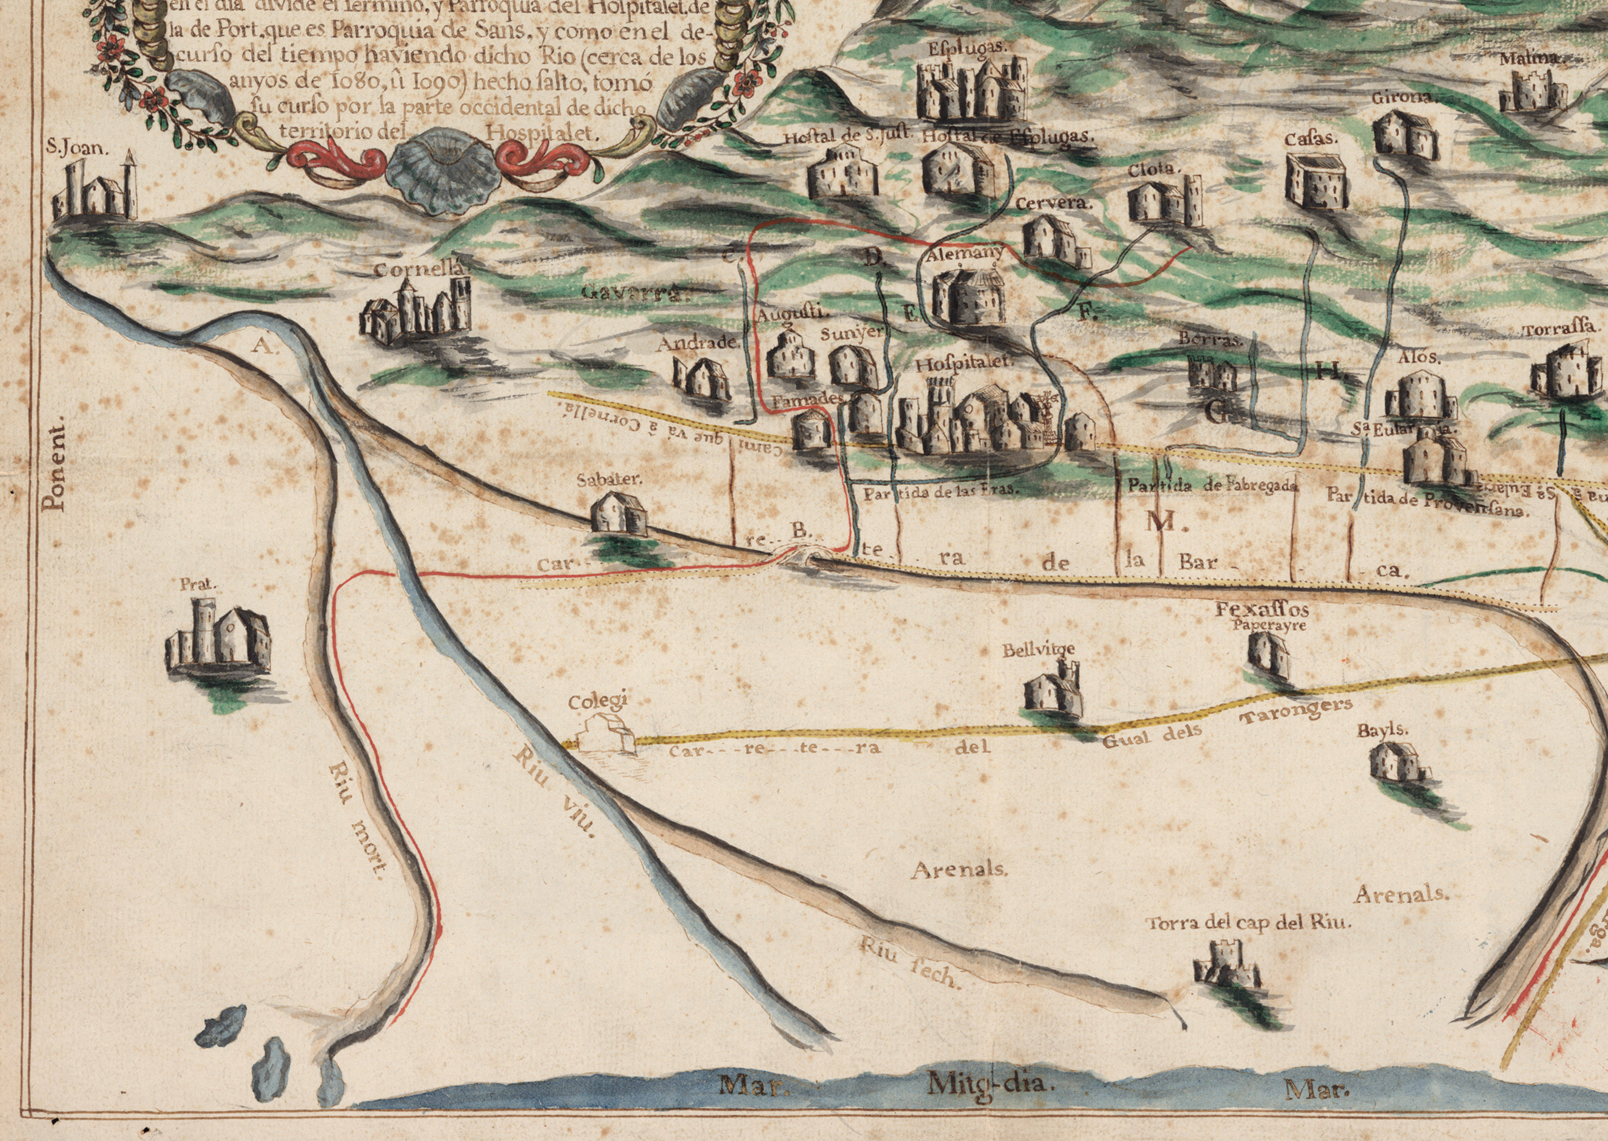 en el dia divide el Termino, y Parroquia del Hospitalet, de
la de Port, que es Parroquia de Sans, y como en el de-
curso del tiempo haviendo dicho Rio (cerca de los
anyos de 1080, ù 1090) hecho salto, tomó
su curso por la parte occidental de dicho
territorio del Hospitalet.
S. Joan.
Esplugas.
Malina.
Girona.
Hostal de S. Just.
Hostal de Esplugas.
Casas.
Clota.
Cervera.
Cornellá
Gavarra.
C.
D.
Alemany
E
F.
A.
Augusti.
Sunÿer
Andrade.
Hospitalet.
Borras.
H.
Alós.
Torrassa.
Famades
G.
Sᵗᵃ Eularia.
Camí que vá â Cornellá.
Ponent.
Sabater.
Partida de las Eras.
Partida de Fabregada
Partida de Provensana.
Sᵃ Eularia
M.
B.
Car-re-te-ra de la Bar-ca.
Prat.
Fexassos
Paperayre
Bellvitge
Colegi
Car---re---te---ra del Gual dels Tarongers
Bayls.
Riu viu.
Riu mort.
Arenals.
Arenals.
Torra del cap del Riu.
Riu sech.
Mar.
Mitg-dia.
Mar.